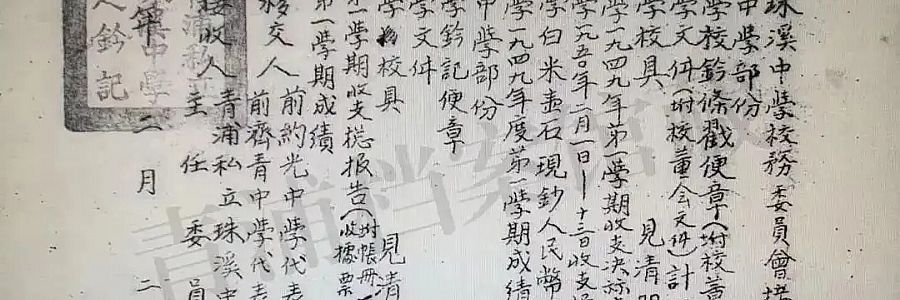 珠溪中學校務委員會
中學部份
學校鈐條戳便章(附校董
學文件(附校董会文件)計
學校具 見清
學一九四九年第一學期收支決
一九五〇年二月一日—十三日收支
學白米壹石現鈔人民幣
學一九四九年度第一學期成績
中學部份
學鈐記便章
學文件
學校具 見清
第一學期收支總报告(附帳册 收據票
第一學期成績
移交人 前約光中學代表
前齊青中學代表
接收人 青浦私立珠溪中
主任委員
年二月二
浦私立
溪中學
人鈐記
青浦档案